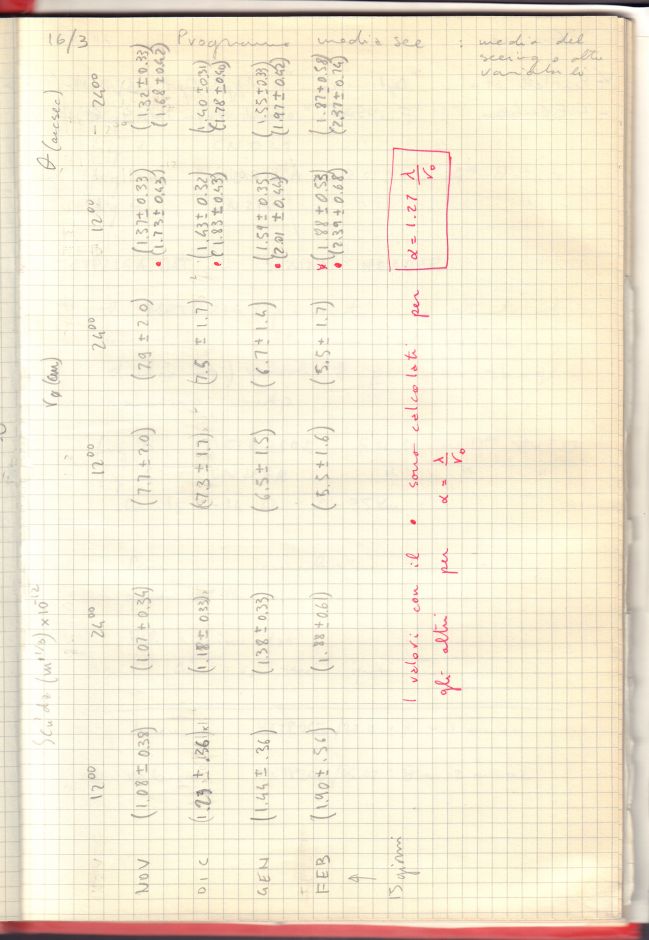 16/3 Programma media see : media del
seeing o altre
variabili
∫Cn²dz (m^1/3) x10^-12 r₀ (cm) θ (arcsec)
12⁰⁰ 24⁰⁰ 12⁰⁰ 24⁰⁰ 12⁰⁰ 24⁰⁰
NOV (1.08 ± 0.38) (1.07 ± 0.34) (7.7 ± 2.0) (7.9 ± 2.0) (1.37 ± 0.33) (1.32 ± 0.33)
• (1.73 ± 0.43) (1.68 ± 0.42)
DIC (1.23 ± .36) (1.18 ± 0.33) (7.3 ± 1.7) (7.5 ± 1.7) (1.43 ± 0.32) (1.40 ± 0.31)
• (1.83 ± 0.43) (1.78 ± 0.40)
GEN (1.44 ± .36) (1.38 ± 0.33) (6.5 ± 1.5) (6.7 ± 1.4) (1.59 ± 0.35) (1.55 ± 0.33)
• (2.01 ± 0.44) (1.97 ± 0.42)
FEB (1.90 ± .56) (1.88 ± 0.61) (5.5 ± 1.6) (5.5 ± 1.7) (1.88 ± 0.53) (1.87 ± 0.58)
• (2.39 ± 0.68) (2.37 ± 0.74)
↑
15 giorni
I valori con il • sono calcolati per α = 1.27 λ/r₀
gli altri per α = λ/r₀